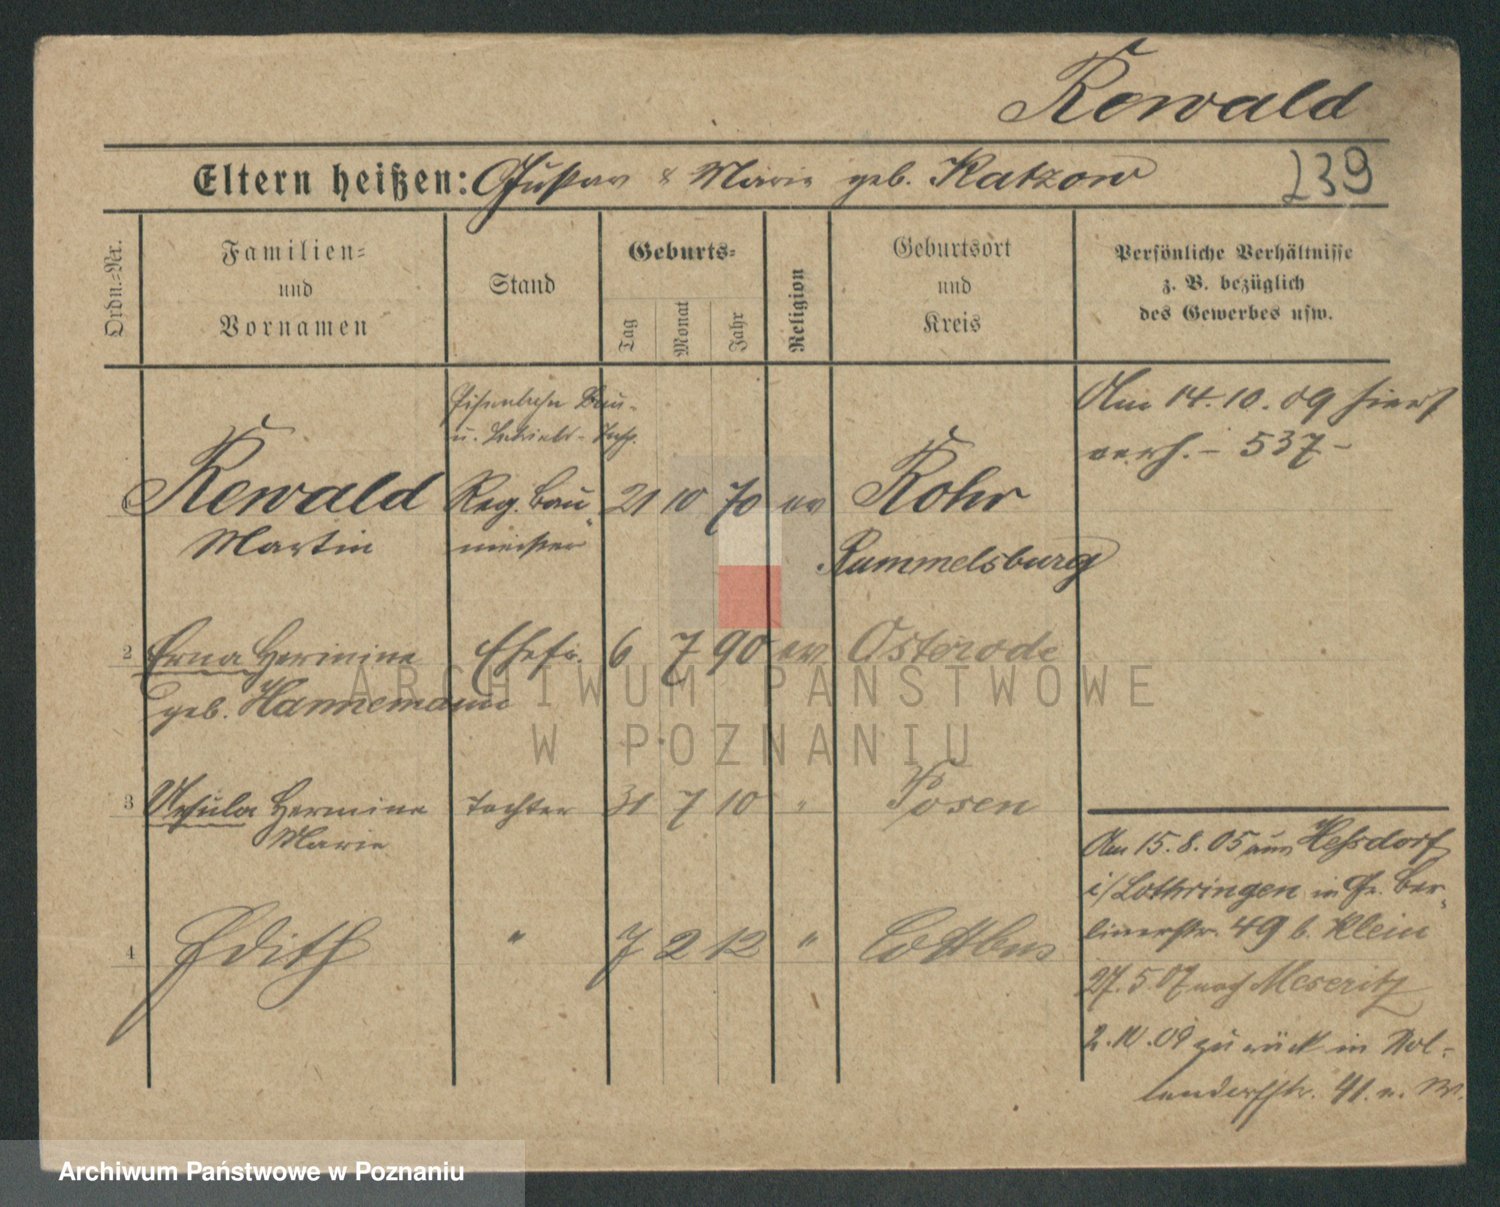 Rewald
Eltern heißen: Gustav & Marie geb. Katzow
239
Ordn.=Nr.
Familien=
und
Vornamen
Stand
Geburts=
Tag
Monat
Jahr
Religion
Geburtsort
und
Kreis
Persönliche Verhältnisse
z. B. bezüglich
des Gewerbes usw.
Eisenbahn Bau-
u. Betriebs-Insp.
Rewald Reg. Bau 21 10 70 ev Rohr
Martin meister Rummelsburg
Am 14.10.09 hier
verh. – 537 –
2 Erna Hermine Ehefr. 6 7 90 ev Osterode
geb. Hannemann
3 Ursula Hermine Tochter 31 7 10 " Posen
Marie
4 Edith " 7 2 12 " Cottbus
Am 15.8.05 aus Heßdorf
i/Lothringen in Gr. Ber-
linerstr. 49 b. Klein
27.5.07 nach Meseritz
2.10.09 zurück in Nol-
lendorfstr. 41.
ARCHIWUM PAŃSTWOWE
W POZNANIU
Archiwum Państwowe w Poznaniu